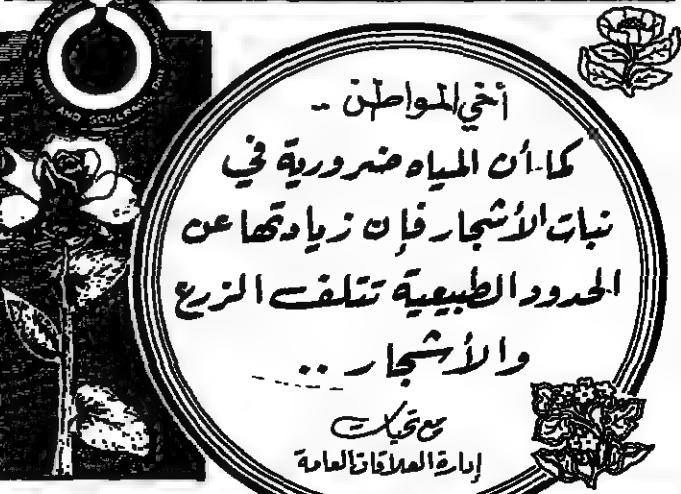 أخي المواطن ..
كما أن المياه ضرورية في
نبات الأشجار فإن زيادتها عن
الحدود الطبيعية تتلف الزرع
والأشجار ..
مع تحيات
إدارة العلاقات العامة
WATER AND